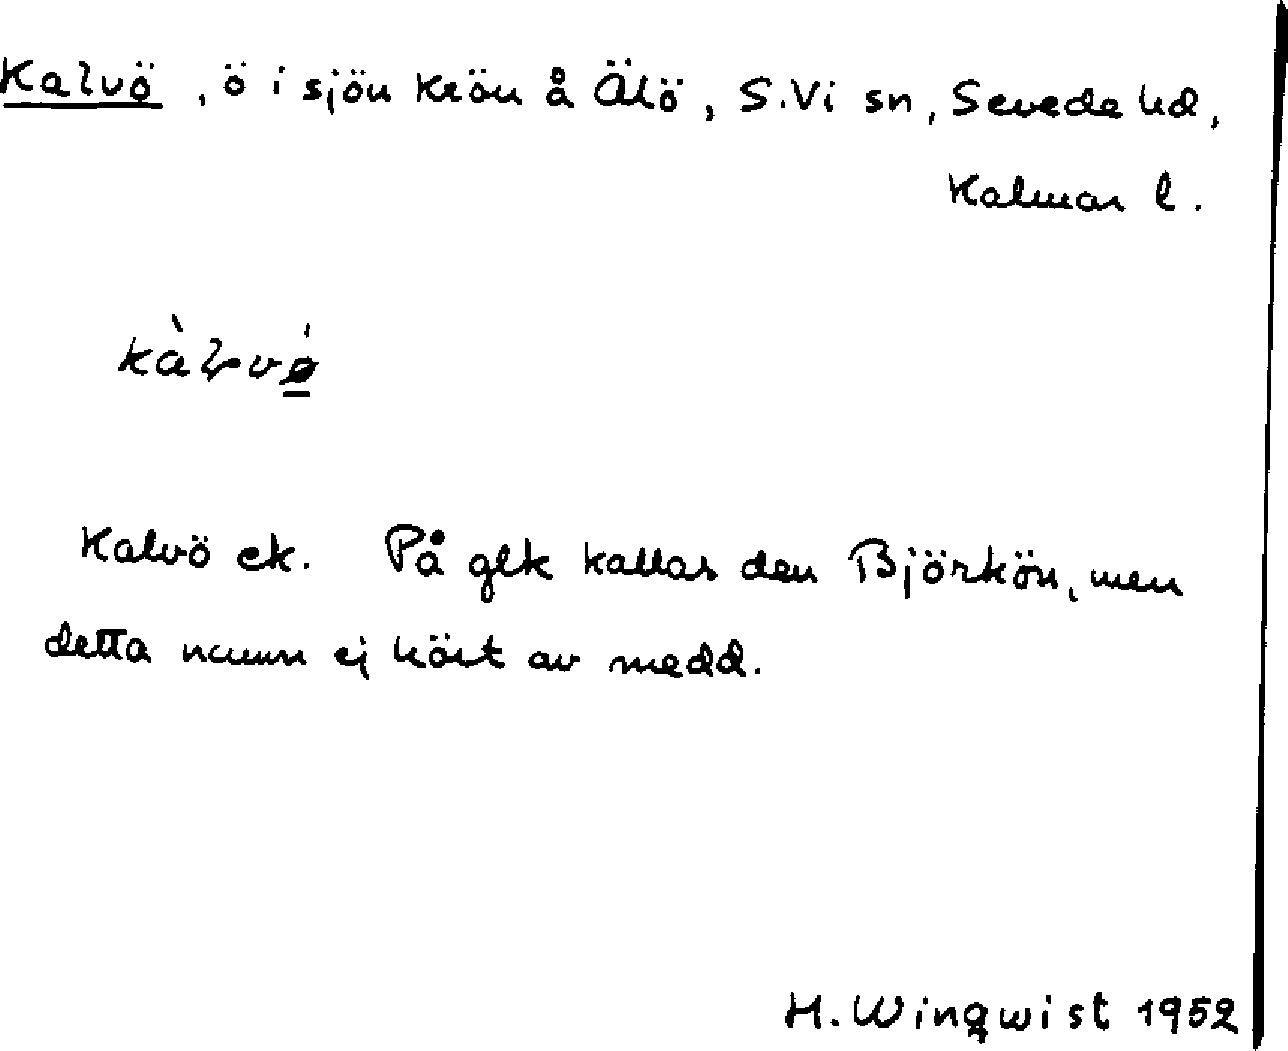 Kalvö, ö i sjön Krön å Älö, S.Vi sn, Sevede hd,
Kalmar l.
Kalvö ek. På glk kallas den Björkön, men
detta namn ej hört av medd.
H. Winqwist 1952